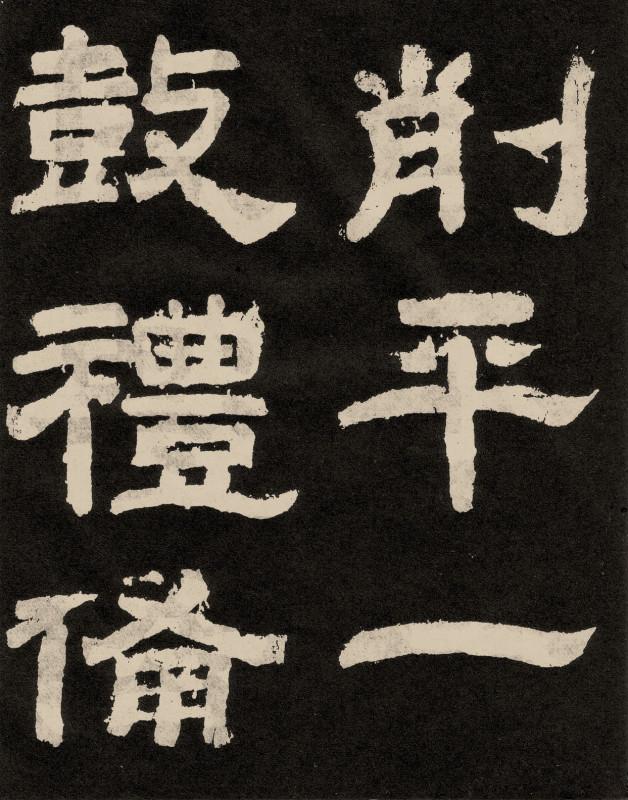 削平一
鼓禮備